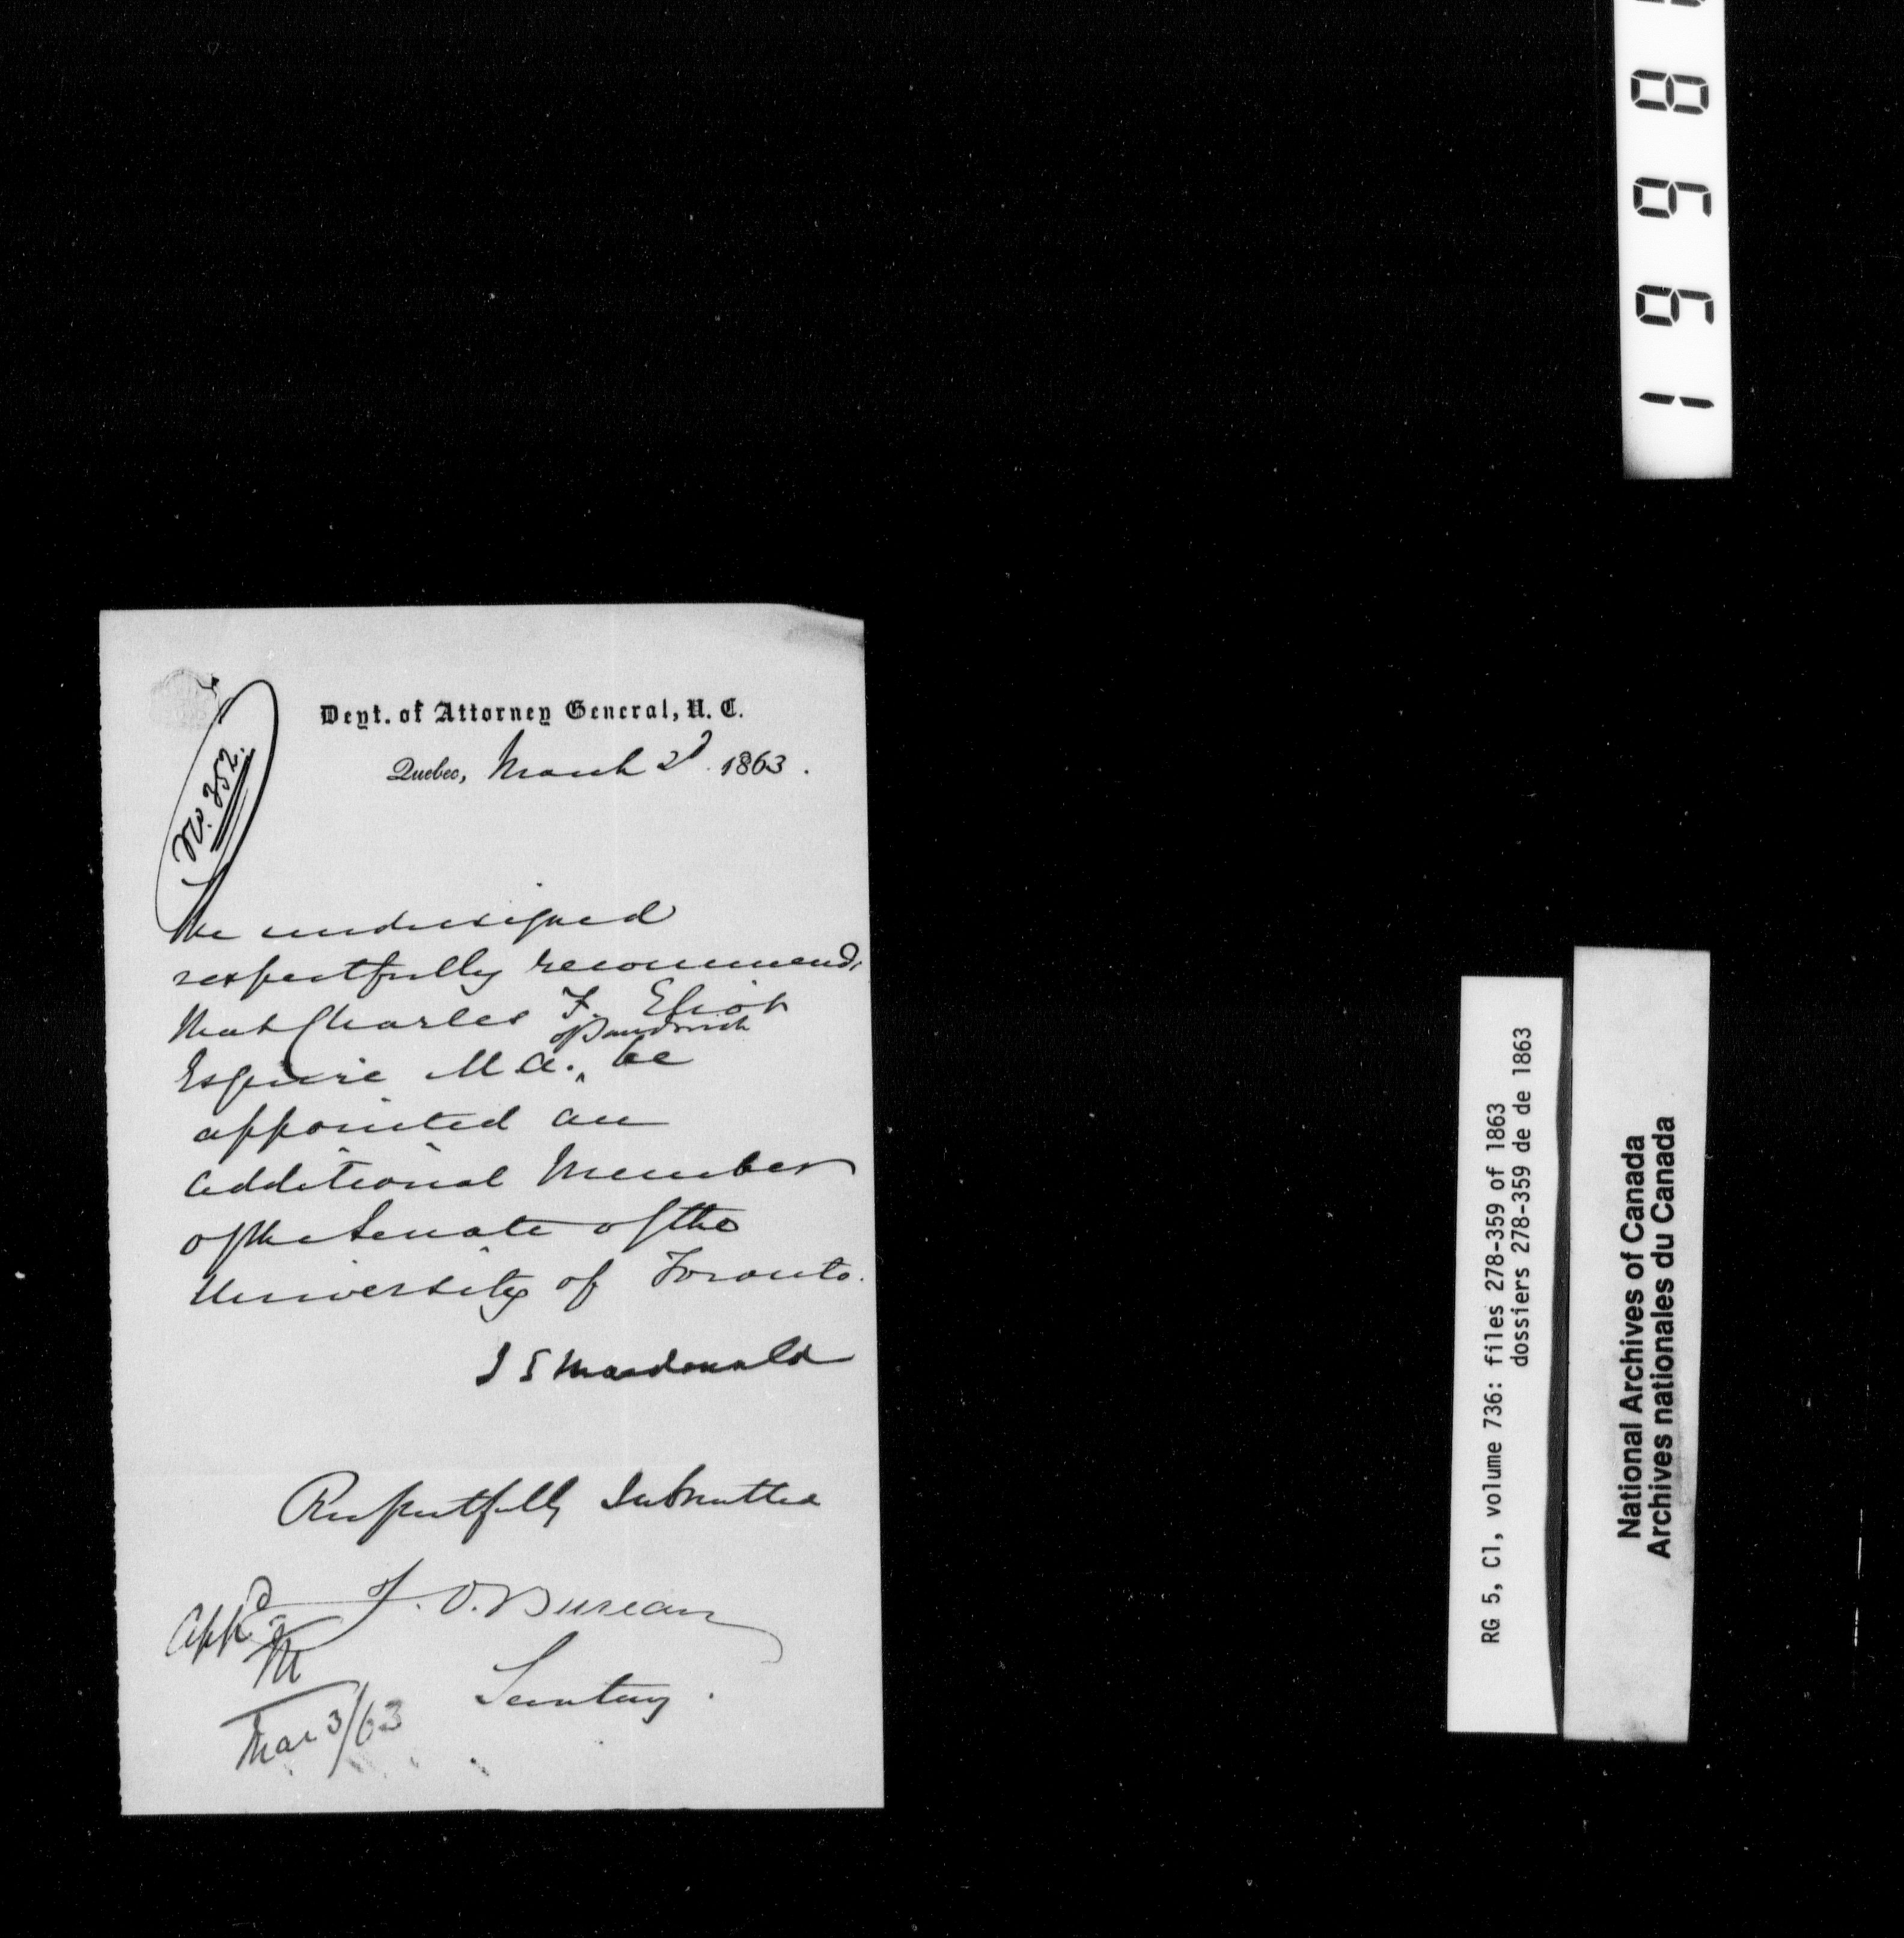 No. 352.
Dept. of Attorney General, U. C.
Quebec, March 2d 1863.
The undersigned
respectfully recommends
that Charles F. Eliot
of Sandwich
Esquire M.A., be
appointed an
additional Member
of the Senate of the
University of Toronto.
J S Macdonald
Respectfully Submitted
J. O. Bureau
Secretary.
Appd
M
Mar 3/63
RG 5, C1, volume 736: files 278-359 of 1863
dossiers 278-359 de de 1863
National Archives of Canada
Archives nationales du Canada